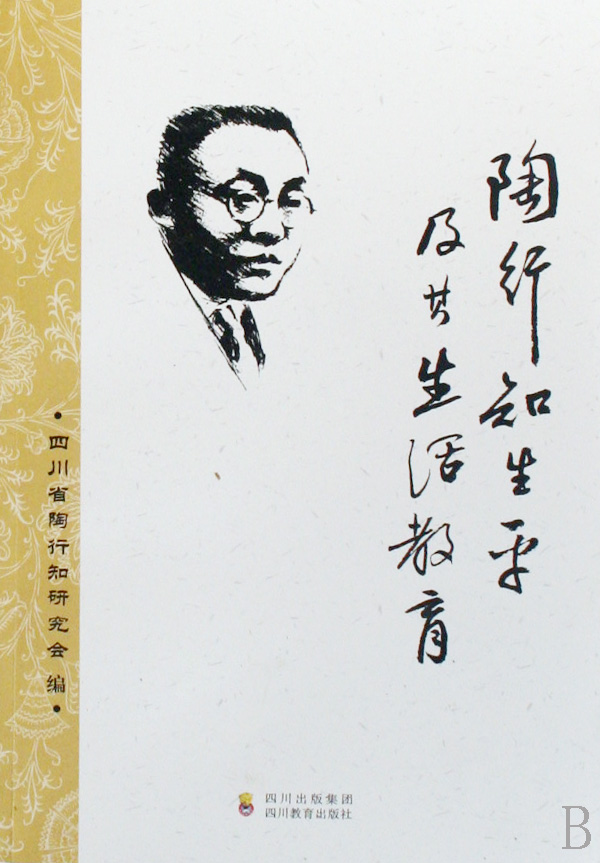 陶行知生平
及其生活教育
•四川省陶行知研究会 编•
四川出版集团
四川教育出版社
B